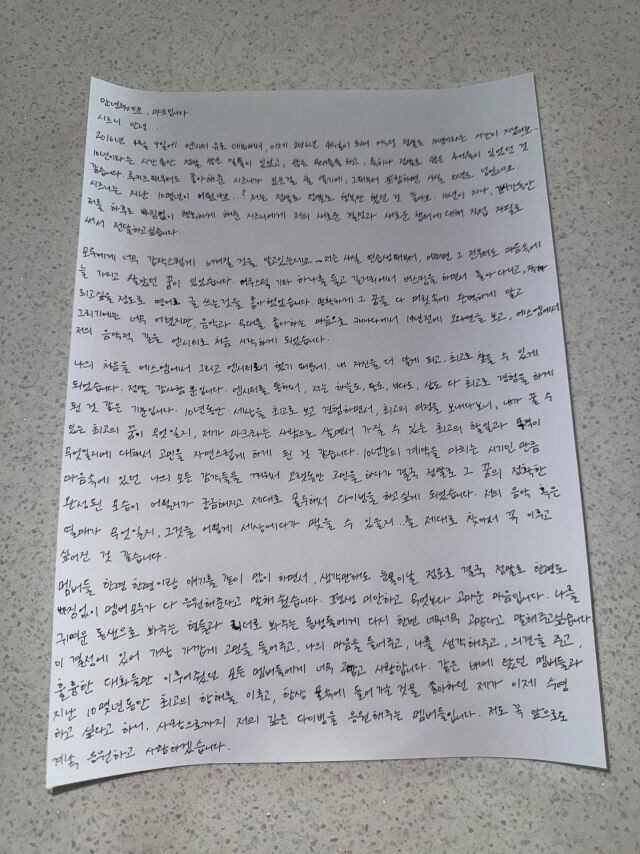 안녕하세요. 마크입니다.
시즈니 안녕....
2016년 4월 9일에 엔시티 유로 데뷔해서, 이제 2026년 4월이 되어 어느덧 정말로 10년이라는 시간이 지났어요..
10년이라는 시간동안 정말 많은 일들이 있었고, 많은 무대들을 하고, 특히나 정말로 많은 추억들이 있었던 것
같습니다. 루키즈때부터도 좋아해준 시즈니가 있는걸 잘 알기에, 그때부터 포함하면 사실 10년도 넘었네요.
시즈니는 지난 10몇년이 어땠나요...? 저는 정말로 정말로 행복만 했던 것 같아요. 10년이 지나, 긴시간동안
저를 하루도 빠짐없이 행복하게 해준 시즈니에게 저의 새로운 결정과 새로운 챕터에 대해 직접 자필로
써서 전달하고싶습니다.
모두에게 너무 갑작스럽게 느껴질 것을 알고있는데요.. 저는 사실 연습생때부터, 어쩌면 그 전부터도 마음속에
늘 가지고 살았던 꿈이 있었습니다. 어쿠스틱 기타 하나를 들고 길거리에서 버스킹을 하면서 돌아 다니고, 작가
되고싶을 정도로 영어로 글 쓰는것을 좋아했었습니다. 명확하게 그 꿈을 다 머릿속에 완벽하게 알고
그리기에는 너무 어렸지만, 음악과 무대를 좋아하는 마음으로 캐나다에서 14년전에 오디션을 보고, 에스엠에서
저의 음악적 길을 엔시티로 처음 시작하게 되었습니다.
나의 처음을 에스엠에서 그리고 엔시티로서 했기 때문에, 내 자신을 더 알게 되고, 최고로 찾을 수 있게
되었습니다. 정말 감사할 뿐입니다. 엔시티를 통해서, 저는 하늘도, 땅도, 바다도, 산도 다 최고로 경험을 하게
된 것 같은 기분입니다. 10년동안 세상을 최고로 보고 경험하면서, 최고의 여정을 보내다보니, 내가 꿀 수
있는 최고의 꿈이 무엇일지, 제가 마크라는 사람으로 살면서 가질 수 있는 최고의 할일과 목적이
무엇일지에 대해서 고민을 자연스럽게 하게 된 것 같습니다. 10년간의 계약을 마치는 시기인 만큼
마음속에 있던 나의 모든 감각들을 깨워서 오랫동안 고민을 하다가 결국 정말로 그 꿈의 정확한
완성된 모습이 어떨지가 궁금해지고 제대로 몰두해서 다이빙을 하고싶게 되었습니다. 저의 음악 혹은
열매가 무엇일지, 그것을 어떻게 세상에다가 맺을 수 있을지..를 제대로 찾아서 꼭 이루고
싶어진 것 같습니다.
멤버들 한명 한명이랑 얘기를 같이 많이 하면서, 생각만해도 눈물이날 정도로 결국 정말로 한명도
빠짐없이 멤버 모두가 다 응원해준다고 말해 줬습니다. 평생 미안하고 무엇보다 고마운 마음입니다. 나를
귀여운 동생으로 봐주는 형들과 리더로 봐주는 동생들에게 다시 한번 너무너무 고맙다고 말해주고싶습니다.
이 결정에 있어 가장 가깝게 고민을 들어주고, 나의 마음을 들어주고, 나를 생각해주고, 의견을 주고,
훌륭한 대화들만 이루어졌던 모든 멤버들에게 너무 고맙고 사랑합니다. 같은 배에 탔던 멤버들과
지난 10몇년동안 최고의 항해를 이루고, 항상 물속에 들어가는 것을 좋아하던 제가 이제 수영
하고 싶다고 하니, 사랑으로까지 저의 깊은 다이빙을 응원해주는 멤버들입니다. 저도 꼭 앞으로도
계속 응원하고 사랑하겠습니다.